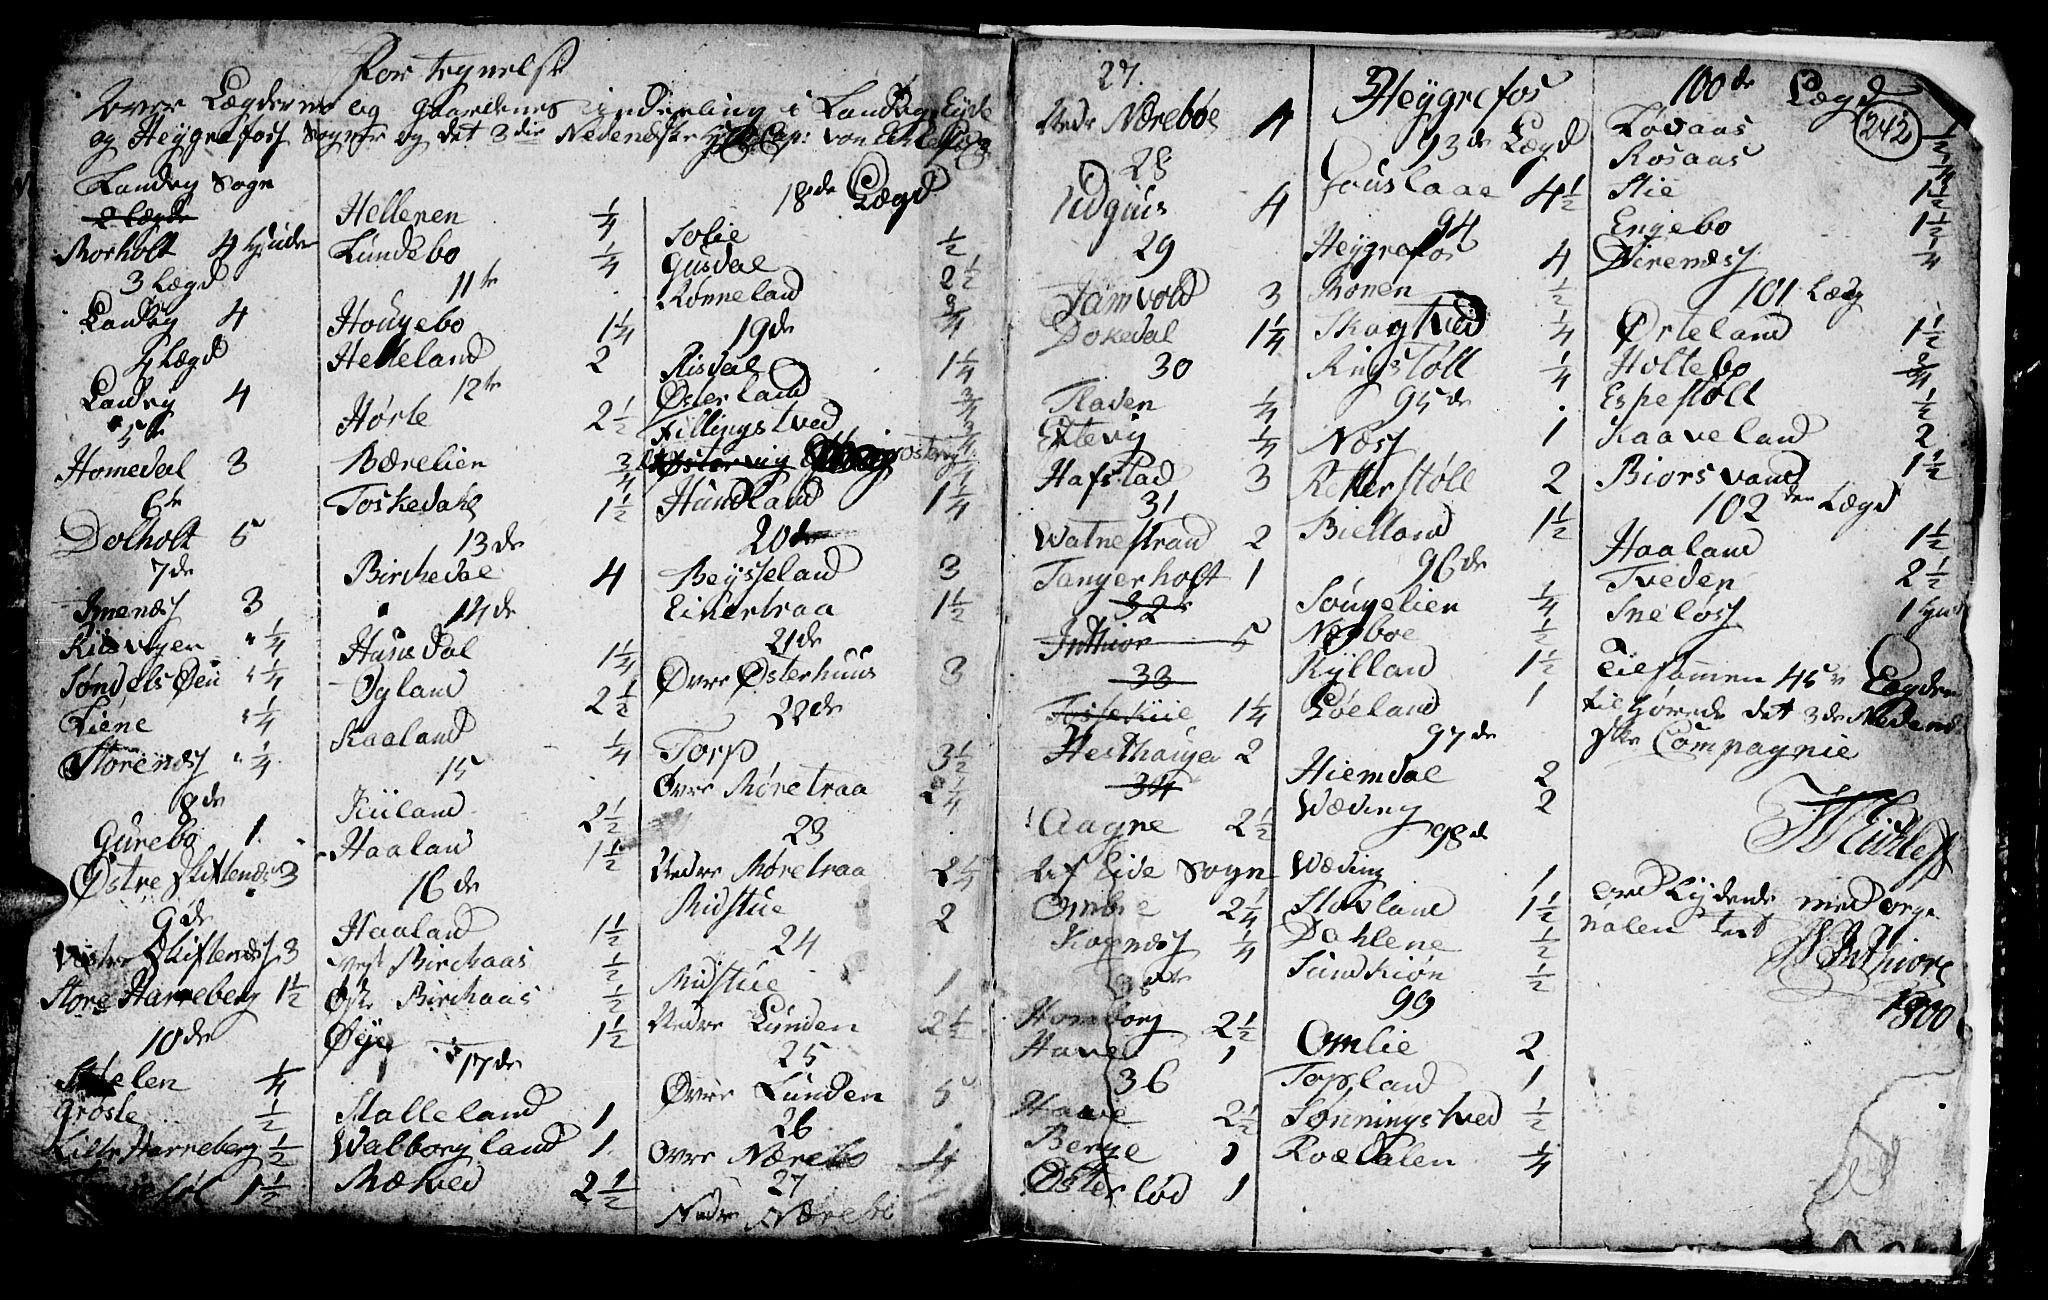 Fortegnelse
Over Lægderne og Gaardenes inddeeling i Landvig Eyde
og Heygrefos Sogner og det 3die Nedenæske Cap: von
Landvig Sogn
2 Lægde
Morholt 4 Huder
3 Lægd
Landvig 4
4 Lægd
Landvig 4
5te
Homedal 3
6te
Dolholt 5
7de
Imenæs 3
Risvigen " 1/4
Søndels Øen " 1/4
Liene " 1/4
Storenæs " 1/4
8de
Gurebo 1
Østre Skiftenæs 3
9de
Vestre Skiftenæs 3
Store Harreberg 1 1/2
10de
1/4
Grøsle 1/2
Lille Harreberg 1/2
1 1/2
Helleren 1/4
Lundebo 1/4
11te
Hougebo 1 1/4
Helleland 2
12te
Hørte 2 1/2
Bærelien 3/4
Toskedahl 1 1/2
13de
Birkedal 4
14de
Hunsdal 1 1/4
Øgland 2 1/2
Kaaland 1/4
15
Kuland 2 1/2
Haaland 1 1/2
16de
Haaland 1 1/2
Vest Birchaas 1/2
Øst Birchaas 1/2
Øye 1 1/2
17de
Stalleland 1
Walborgland 1
Mækved 2 1/2
18de Lægd
Solie 1/2
Gusdal 2 1/2
Rønneland 3/4
19de
Risdal 1 1/4
Østerland 3/4
Fillingstved
Østervig
Hundland 1 1/4
20de
Beysseland 3
Eikertraa 1 1/2
21de
Øvre Østerhuus 3
22de
Torp 3 1/2
Øvre Møretraa 2 1/4
23
Nedre Møretraa 2 1/4
Midstue 2
24
Midstue 1
Nedre Lunden 2 1/2
25
Øvre Lunden 5
26
Øvre Nærebo 4
27
Nedre Nærebo
27.
Nedr Nærebøe 4
28
4
29
Jamvold 3
Dokedal 1 1/4
30
Fladen 1/4
1/4
Hafstad 3
31
Watnestrand 2
Tangerholt 1
32
Inthior 5
33
Tossekiie 1 1/4
Hesthaugen 2
34
Aagre 2 1/2
Af Eide Sogn
Ombre 2 1/4
Kopnæs 1/4
35te
Homborg 2 1/2
Have 1
36
Haave 2 1/2
Berge 1
Østerlød 1
Heygrefos
93de Lægd
Fouslaae 4 1/2
94
Heygrefos 4
Monen 1/2
Skogtved 1/4
Ringstøll 1/4
95de
Næss 1
Retterstøll 2
Bielland 1 1/2
96de
Sougelien 1/4
Nesboe 1/2
Kylland 1 1/2
Løeland 1
97de
Hiemdal 2
Wæding 2
98de
Wæding 1
Stavland 1 1/2
Dahlene 1/2
Sundkiøn 1/2
99
Omlie 2
Topland 1
Sønningstved 1/2
Roedalen 1/4
100de Lægd
242
Løvaas 1/2
Rosaas 1/4
Stie 1 1/2
Engebo 1 1/2
Direnæs 1/4
101 Lægd
Ørteland 1 1/2
Holtebo 3/4
Espestøll 1/2
Kaaveland 2
Biorsvand 1 1/2
102den Lægd
Haaland 1 1/2
Tveden 2 1/2
Snelos 1 Hud
Tilsammen 45 Lægder
tilhørende det 3de Nedenæ
ske Compagnie
ordlydende med orgi
nalen test
Inthiore
1800